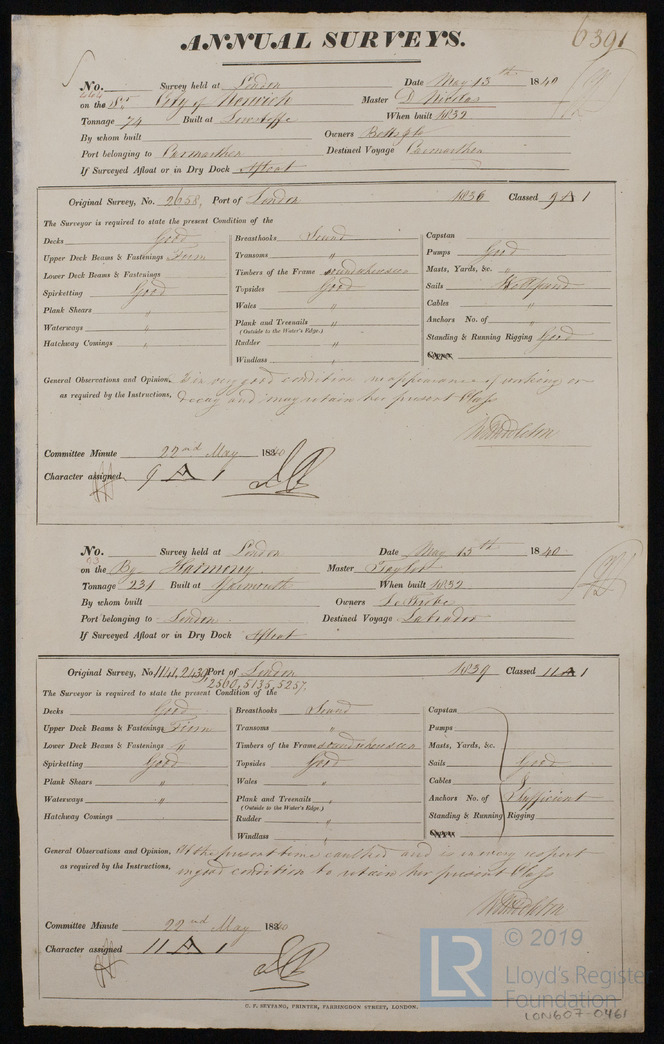 ANNUAL SURVEYS.
6391
No. Survey held at London Date May 13th 1840
on the City of Norwich Master D Nicolas
Tonnage 74 Built at Lowestoffe When built 1832
By whom built Owners
Port belonging to Carmarthen Destined Voyage Carmarthen
If Surveyed Afloat or in Dry Dock Afloat
Original Survey, No. 2658, Port of London 1836 Classed 9 A 1
The Surveyor is required to state the present Condition of the
Decks Good
Upper Deck Beams & Fastenings Firm
Lower Deck Beams & Fastenings
Spirketting Good
Plank Shears "
Waterways "
Hatchway Comings "
Breasthooks Sound
Transoms "
Timbers of the Frame sound where seen
Topsides Good
Wales "
Plank and Treenails "
(Outside to the Water's Edge.)
Rudder "
Windlass "
Capstan
Pumps Good
Masts, Yards, &c. "
Sails
Cables "
Anchors No. of "
Standing & Running Rigging Good
General Observations and Opinion, Is in very good condition no appearance of working or
as required by the Instructions, decay and may retain her present Class
Committee Minute 22nd May 1840
Character assigned 9 A 1
No. Survey held at London Date May 13th 1840
on the Bg Harmony Master Taylor
Tonnage 231 Built at Yarmouth When built 1832
By whom built Owners
Port belonging to London Destined Voyage Labrador
If Surveyed Afloat or in Dry Dock Afloat
Original Survey, No 1141, 2439, Port of London 1839 Classed 11 A 1
2560, 5135, 5257,
The Surveyor is required to state the present Condition of the
Decks Good
Upper Deck Beams & Fastenings Firm
Lower Deck Beams & Fastenings "
Spirketting Good
Plank Shears "
Waterways "
Hatchway Comings "
Breasthooks Sound
Transoms "
Timbers of the Frame sound where seen
Topsides Good
Wales "
Plank and Treenails "
(Outside to the Water's Edge.)
Rudder "
Windlass "
Capstan
Pumps
Masts, Yards, &c.
Sails Good
Cables &
Anchors No. of Sufficient
Standing & Running Rigging
General Observations and Opinion, At the present time caulked and is in every respect
as required by the Instructions, in good condition to retain her present Class
Committee Minute 22nd May 1840
Character assigned 11 A 1
C. F. SEYFANG, PRINTER, FARRINGDON STREET, LONDON.
LR © 2019
Lloyd's Register
Foundation
LON607-0461